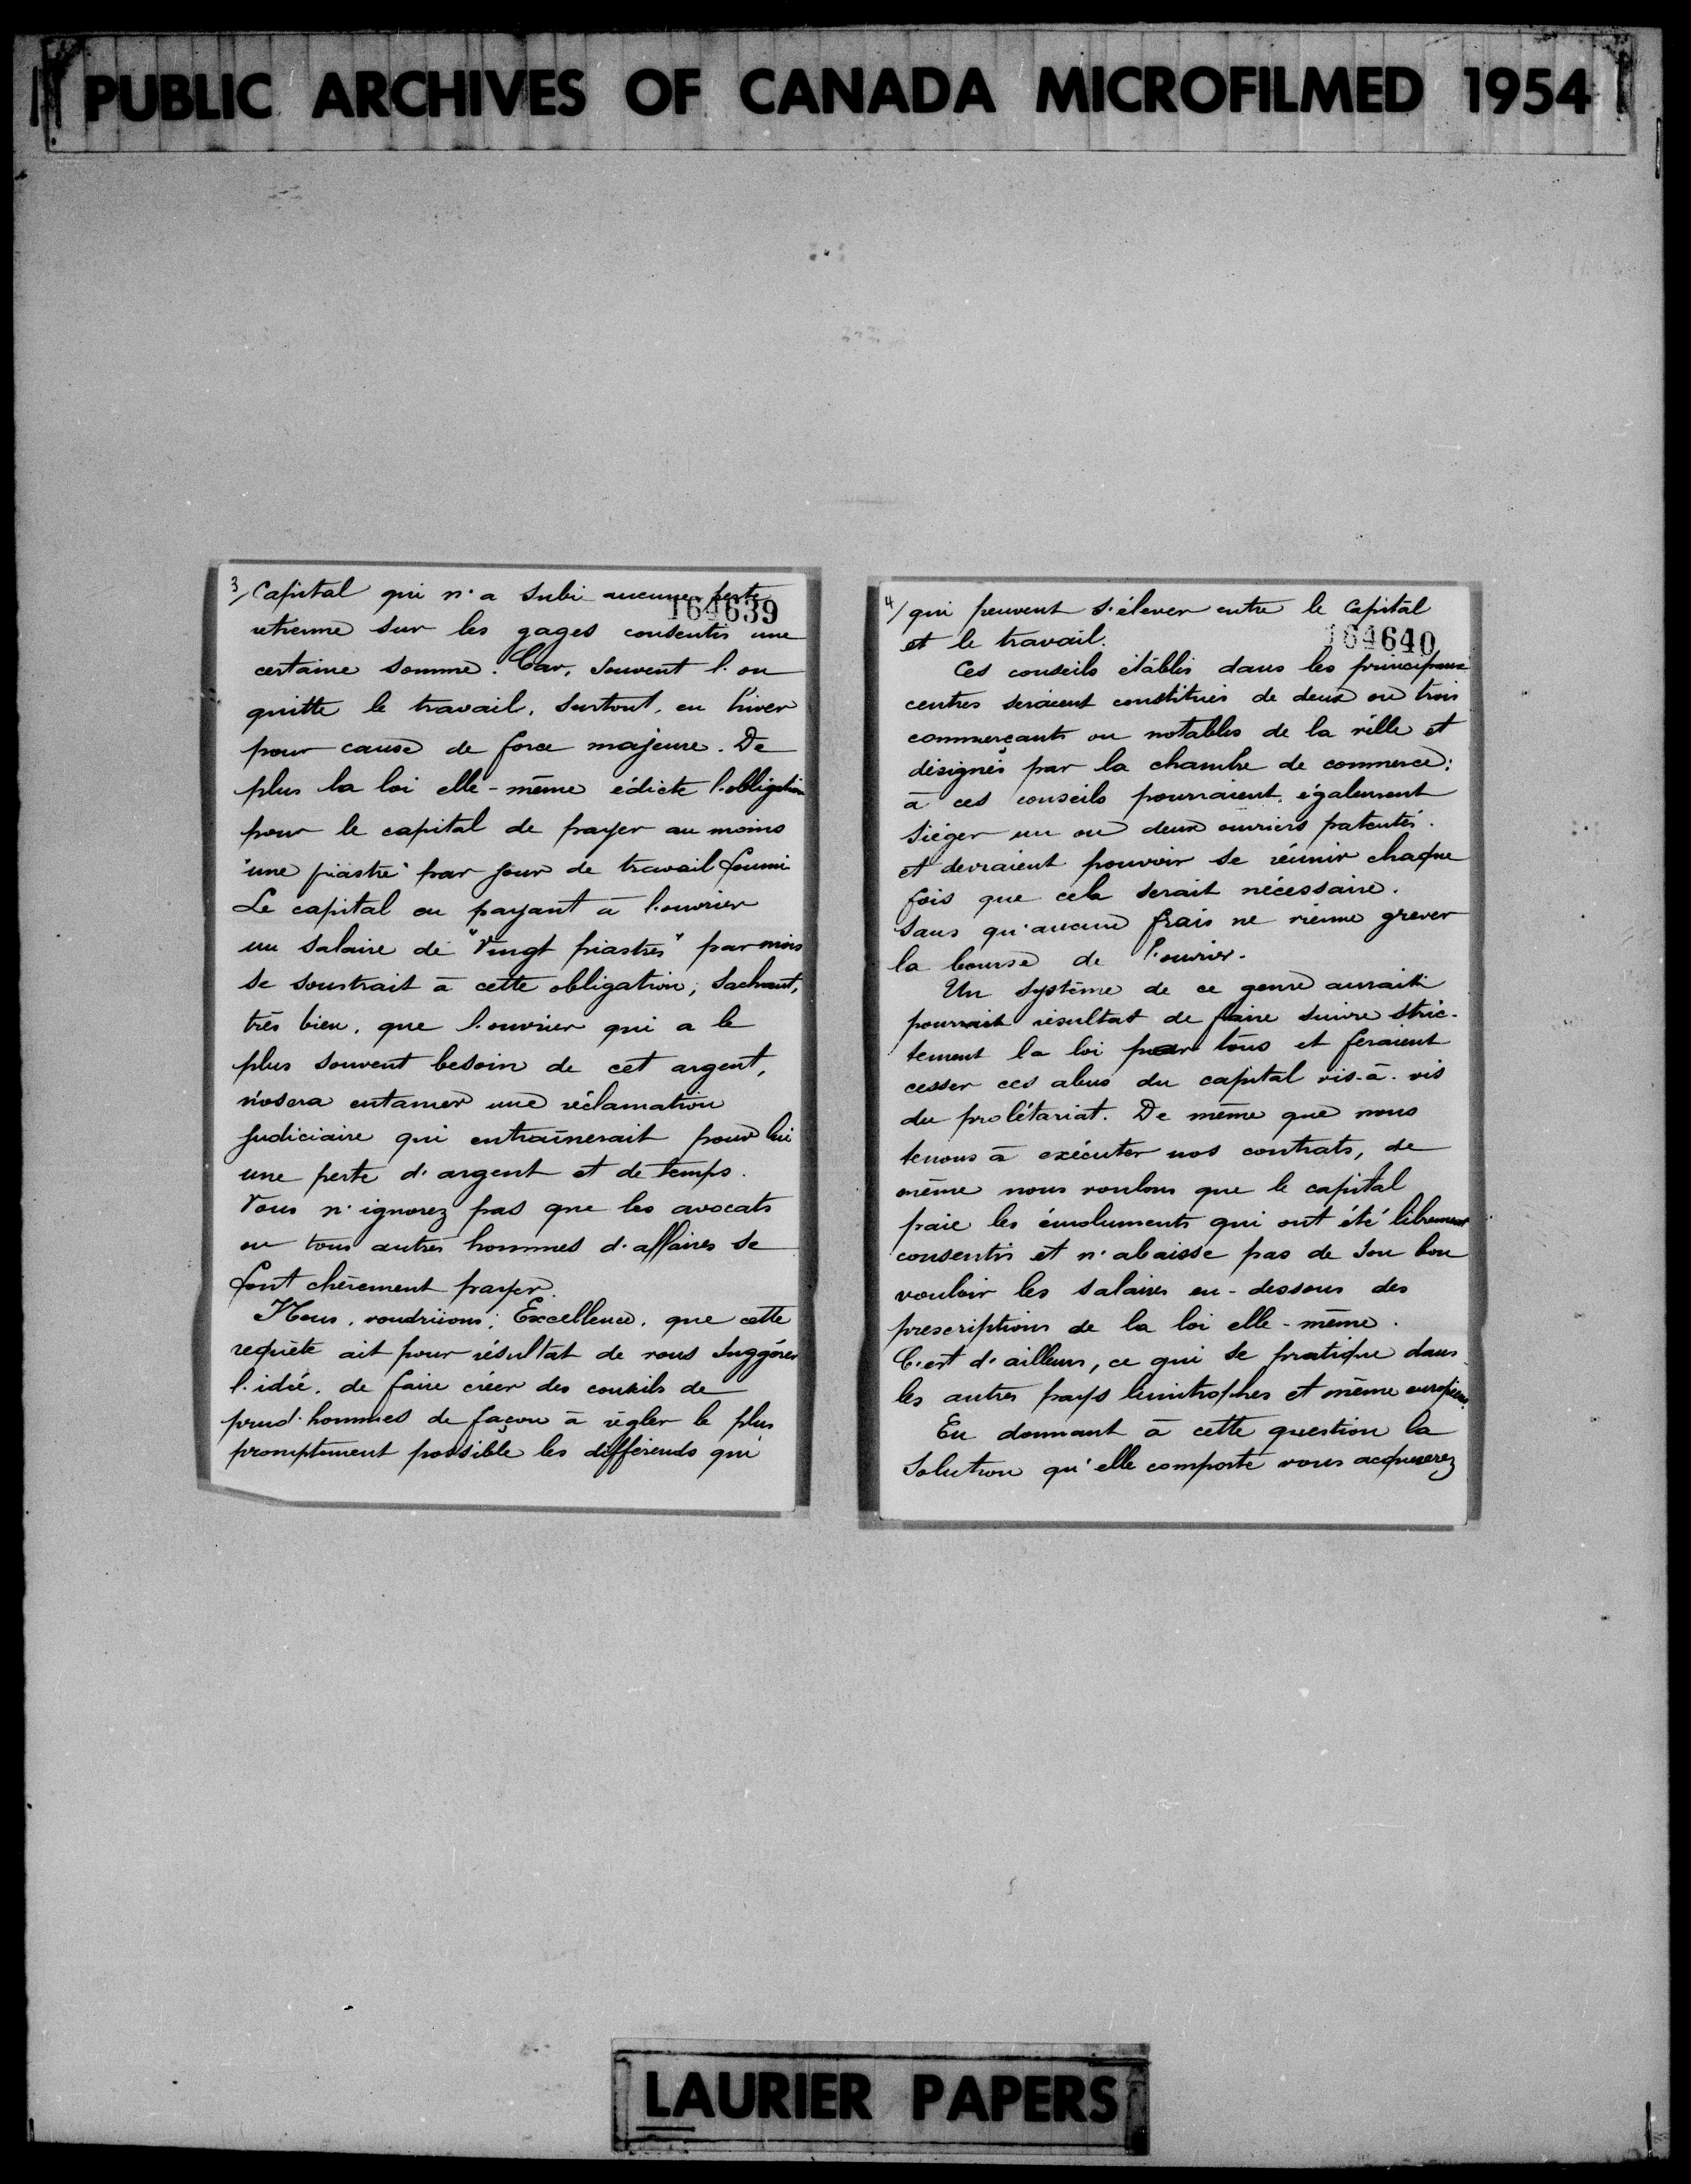 PUBLIC ARCHIVES OF CANADA MICROFILMED 1954
3/ Capital qui n'a subi aucune perte
164639
retienne sur les gages consentis une
certaine somme. Car, souvent l'on
quitte le travail, surtout, en hiver
pour cause de force majeure. De
plus la loi elle-même édicte l'obligation
pour le capital de payer au moins
"une piastre" par jour de travail fourni
Le capital en payant à l'ouvrier
un salaire de "Vingt piastres" par mois
se soustrait à cette obligation; sachant,
très bien, que l'ouvrier qui a le
plus souvent besoin de cet argent,
n'osera entamer une réclamation
judiciaire qui entraînerait pour lui
une perte d'argent et de temps.
Vous n'ignorez pas que les avocats
ou tous autres hommes d'affaires se
font chèrement payer.
Nous, voudriions; Excellence, que cette
requête ait pour résultat de vous suggérer
l'idée, de faire créer des conseils de
prud'hommes de façon à régler le plus
promptement possible les différends qui
4/ qui peuvent s'élever entre le Capital
et le travail.
164640
Ces conseils établis dans les principaux
centres seraient constitués de deux ou trois
commerçants ou notables de la ville et
désignés par la chambre de commerce:
à ces conseils pourraient également
siéger un ou deux ouvriers patentés.
et devraient pouvoir se réunir chaque
fois que cela serait nécessaire.
sans qu'aucun frais ne vienne grever
la bourse de l'ouvrier.
Un système de ce genre aurait
pourrait résultat de faire suivre stric-
tement la loi par tous et feraient
cesser ces abus du capital vis-à-vis
du prolétariat. De même que nous
tenons à exécuter nos contrats, de
même nous voulons que le capital
paie les émoluments qui ont été librement
consentis et n'abaisse pas de son bon
vouloir les salaires en-dessous des
prescriptions de la loi elle-même.
C'est d'ailleurs, ce qui se pratique dans
les autres pays limitrophes et même européens.
En donnant à cette question la
solution qu'elle comporte vous acquererez
LAURIER PAPERS